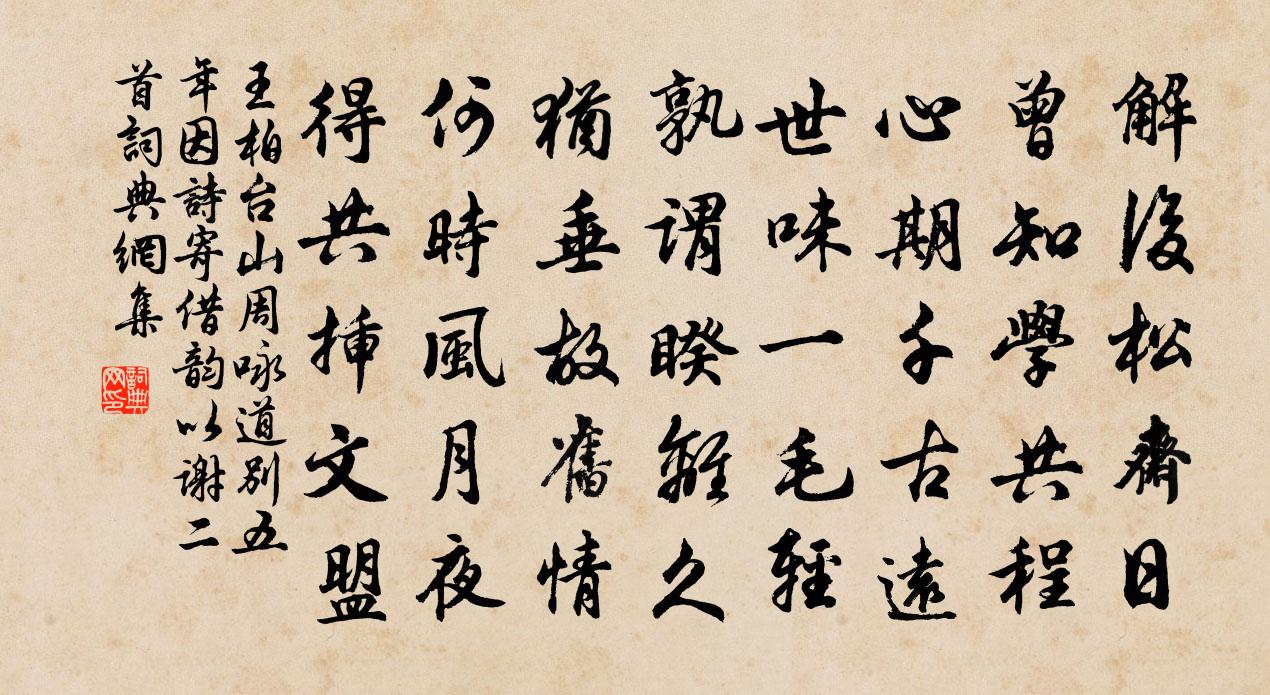 解後松齋日
曾知學共程
心期千古遠
世味一毛輕
孰謂睽離久
猶垂故舊情
何時風月夜
得共揷文盟
王柏台山周咏道別五
年因詩寄借韵以謝二
首詞典網集
詞典
网印